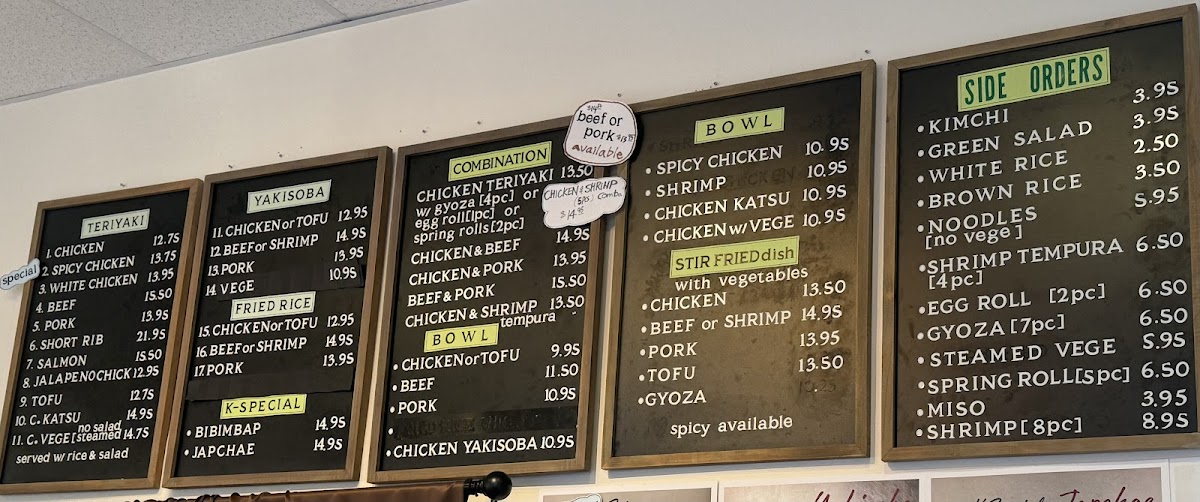 special
TERIYAKI
1. CHICKEN 12.75
2. SPICY CHICKEN 13.75
3. WHITE CHICKEN 13.95
4. BEEF 15.50
5. PORK 13.95
6. SHORT RIB 21.95
7. SALMON 15.50
8. JALAPENO CHICK 12.95
9. TOFU 12.75
10. C. KATSU 14.95
no salad
11. C. VEGE [steamed 14.75
served w/ rice & salad
YAKISOBA
11. CHICKEN or TOFU 12.95
12. BEEF or SHRIMP 14.95
13. PORK 13.95
14. VEGE 10.95
FRIED RICE
15. CHICKEN or TOFU 12.95
16. BEEF or SHRIMP 14.95
17. PORK 13.95
K-SPECIAL
• BIBIMBAP 14.95
• JAPCHAE 14.95
COMBINATION
CHICKEN TERIYAKI 13.50
w/ gyoza [4pc] or
egg roll [1pc] or
spring rolls [2pc]
CHICKEN & BEEF 14.95
CHICKEN & PORK 13.95
BEEF & PORK 15.50
CHICKEN & SHRIMP 13.50
tempura
BOWL
• CHICKEN or TOFU 9.95
• BEEF 11.50
• PORK 10.95
• CHICKEN YAKISOBA 10.95
beef or
pork $13.75
available
CHICKEN & SHRIMP
(5pcs) Combo
$14.95
BOWL
• SPICY CHICKEN 10.95
• SHRIMP 10.95
• CHICKEN KATSU 10.95
• CHICKEN w/ VEGE 10.95
STIR FRIED dish
with vegetables
• CHICKEN 13.50
• BEEF or SHRIMP 14.95
• PORK 13.95
• TOFU 13.50
• GYOZA
spicy available
SIDE ORDERS
• KIMCHI 3.95
• GREEN SALAD 3.95
• WHITE RICE 2.50
• BROWN RICE 3.50
• NOODLES 5.95
[no vege]
• SHRIMP TEMPURA 6.50
[4pc]
• EGG ROLL [2pc] 6.50
• GYOZA [7pc] 6.50
• STEAMED VEGE 5.95
• SPRING ROLL [5pc] 6.50
• MISO 3.95
• SHRIMP [8pc] 8.95